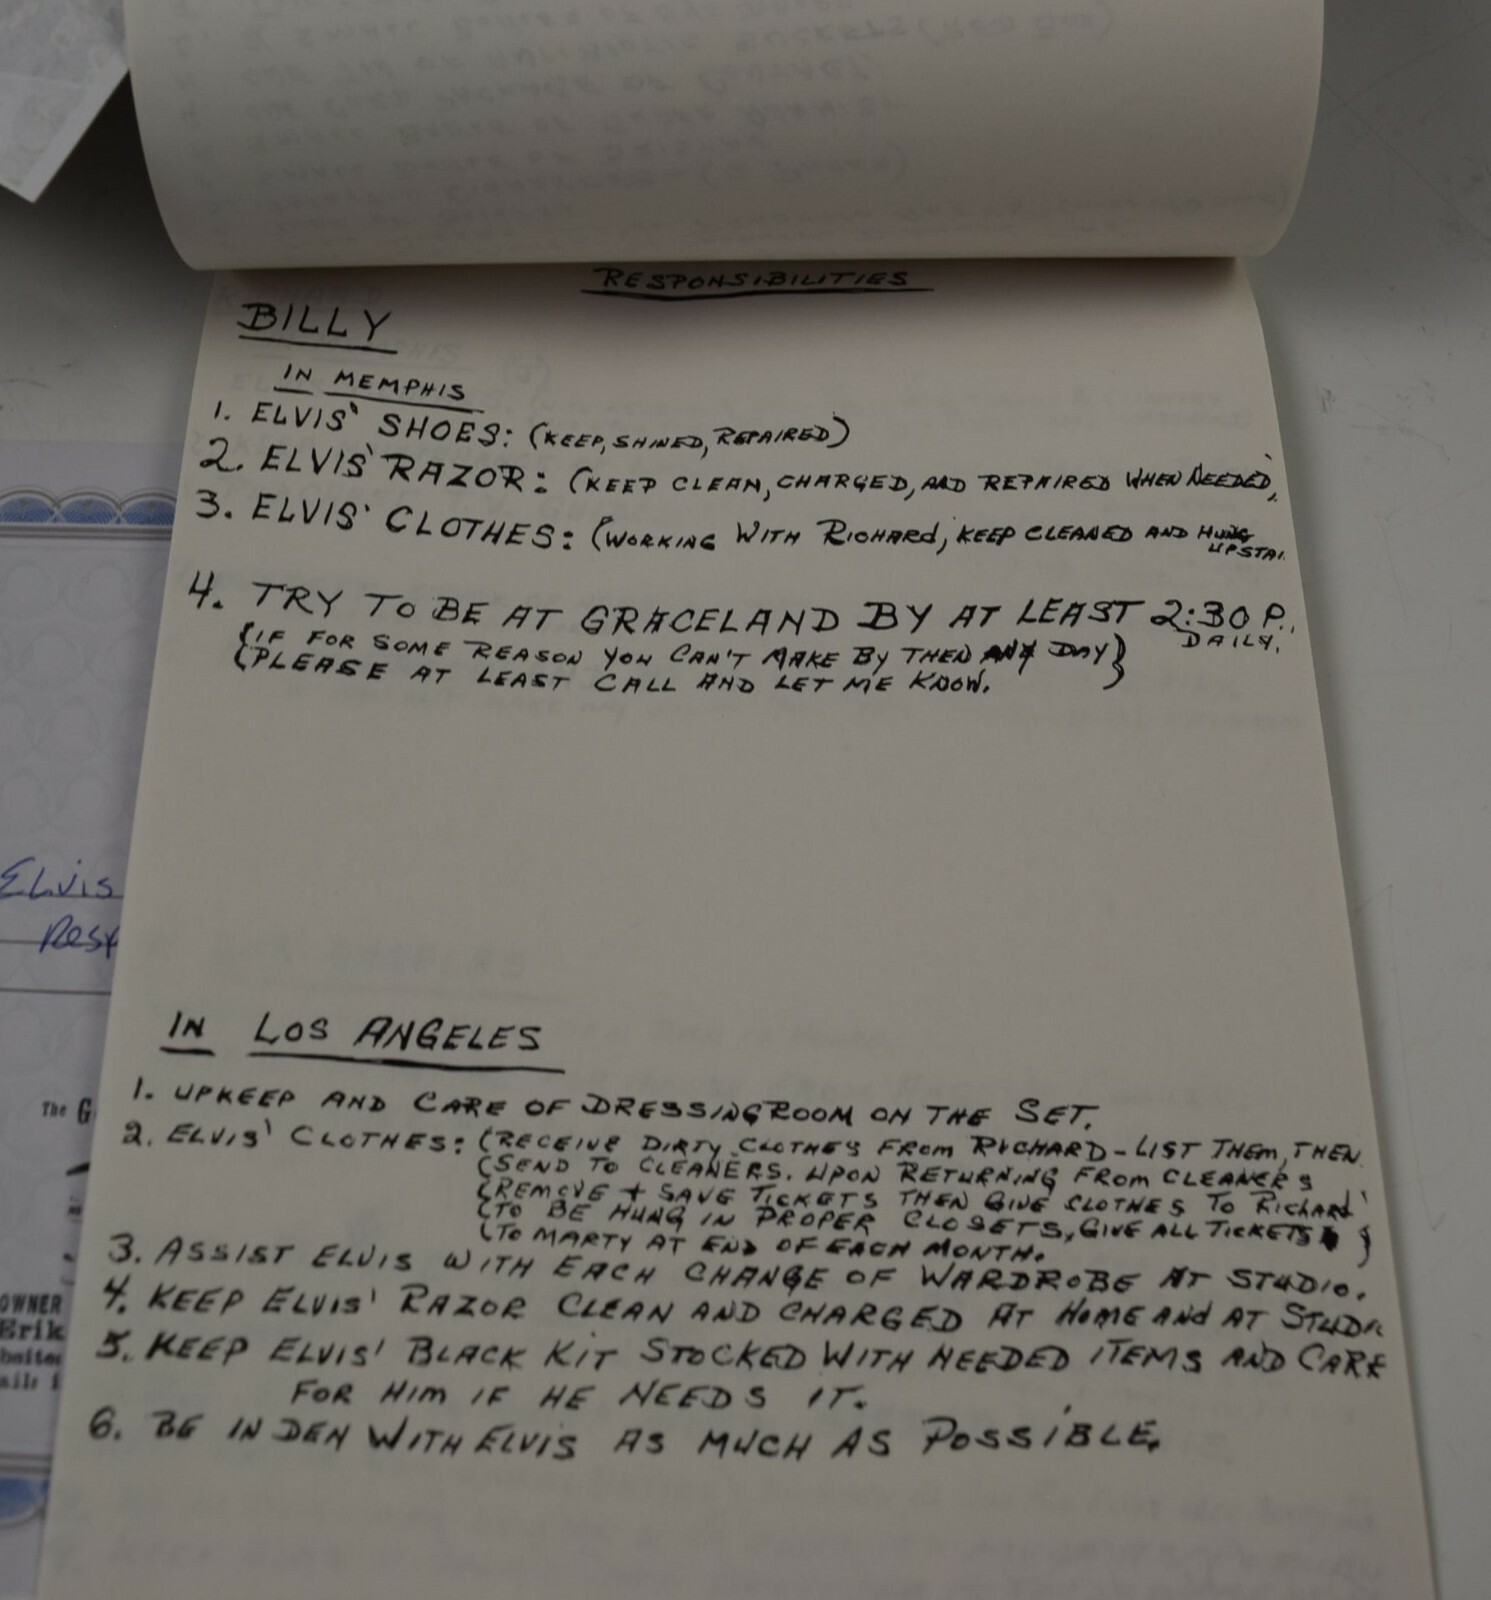 RESPONSIBILITIES
BILLY
IN MEMPHIS
1. ELVIS' SHOES: (KEEP, SHINED, REPAIRED)
2. ELVIS' RAZOR: (KEEP CLEAN, CHARGED, AND REPAIRED WHEN NEEDED,
3. ELVIS' CLOTHES: (WORKING WITH RICHARD, KEEP CLEANED AND HUNG
UPSTAI
4. TRY TO BE AT GRACELAND BY AT LEAST 2:30 P.
DAILY.
(IF FOR SOME REASON YOU CAN'T MAKE BY THEN ANY DAY)
(PLEASE AT LEAST CALL AND LET ME KNOW.
IN LOS ANGELES
1. UPKEEP AND CARE OF DRESSINGROOM ON THE SET.
2. ELVIS' CLOTHES: (RECEIVE DIRTY CLOTHES FROM RICHARD - LIST THEM, THEN
(SEND TO CLEANERS. UPON RETURNING FROM CLEANERS
(REMOVE + SAVE TICKETS THEN GIVE CLOTHES TO RICHARD
(TO BE HUNG IN PROPER CLOSETS, GIVE ALL TICKETS )
(TO MARTY AT END OF EACH MONTH.
3. ASSIST ELVIS WITH EACH CHANGE OF WARDROBE AT STUDIO.
4. KEEP ELVIS' RAZOR CLEAN AND CHARGED AT HOME AND AT STUDI
5. KEEP ELVIS' BLACK KIT STOCKED WITH NEEDED ITEMS AND CARE
FOR HIM IF HE NEEDS IT.
6. BE IN DEN WITH ELVIS AS MUCH AS POSSIBLE.
ELVIS
Resp
The G
OWNER
Erik